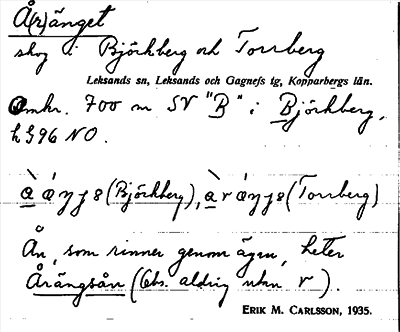 Å(r)änget
skog i Björkberg och Torrberg
Leksands sn, Leksands och Gagnefs tg, Kopparbergs län.
Omkr. 700 m SV "B" i Björkberg,
h 396 NO.
(Björkberg), (Torrberg)
Ån, som rinner genom ägan, heter
Årängsån (Obs. aldrig utan r).
ERIK M. CARLSSON, 1935.